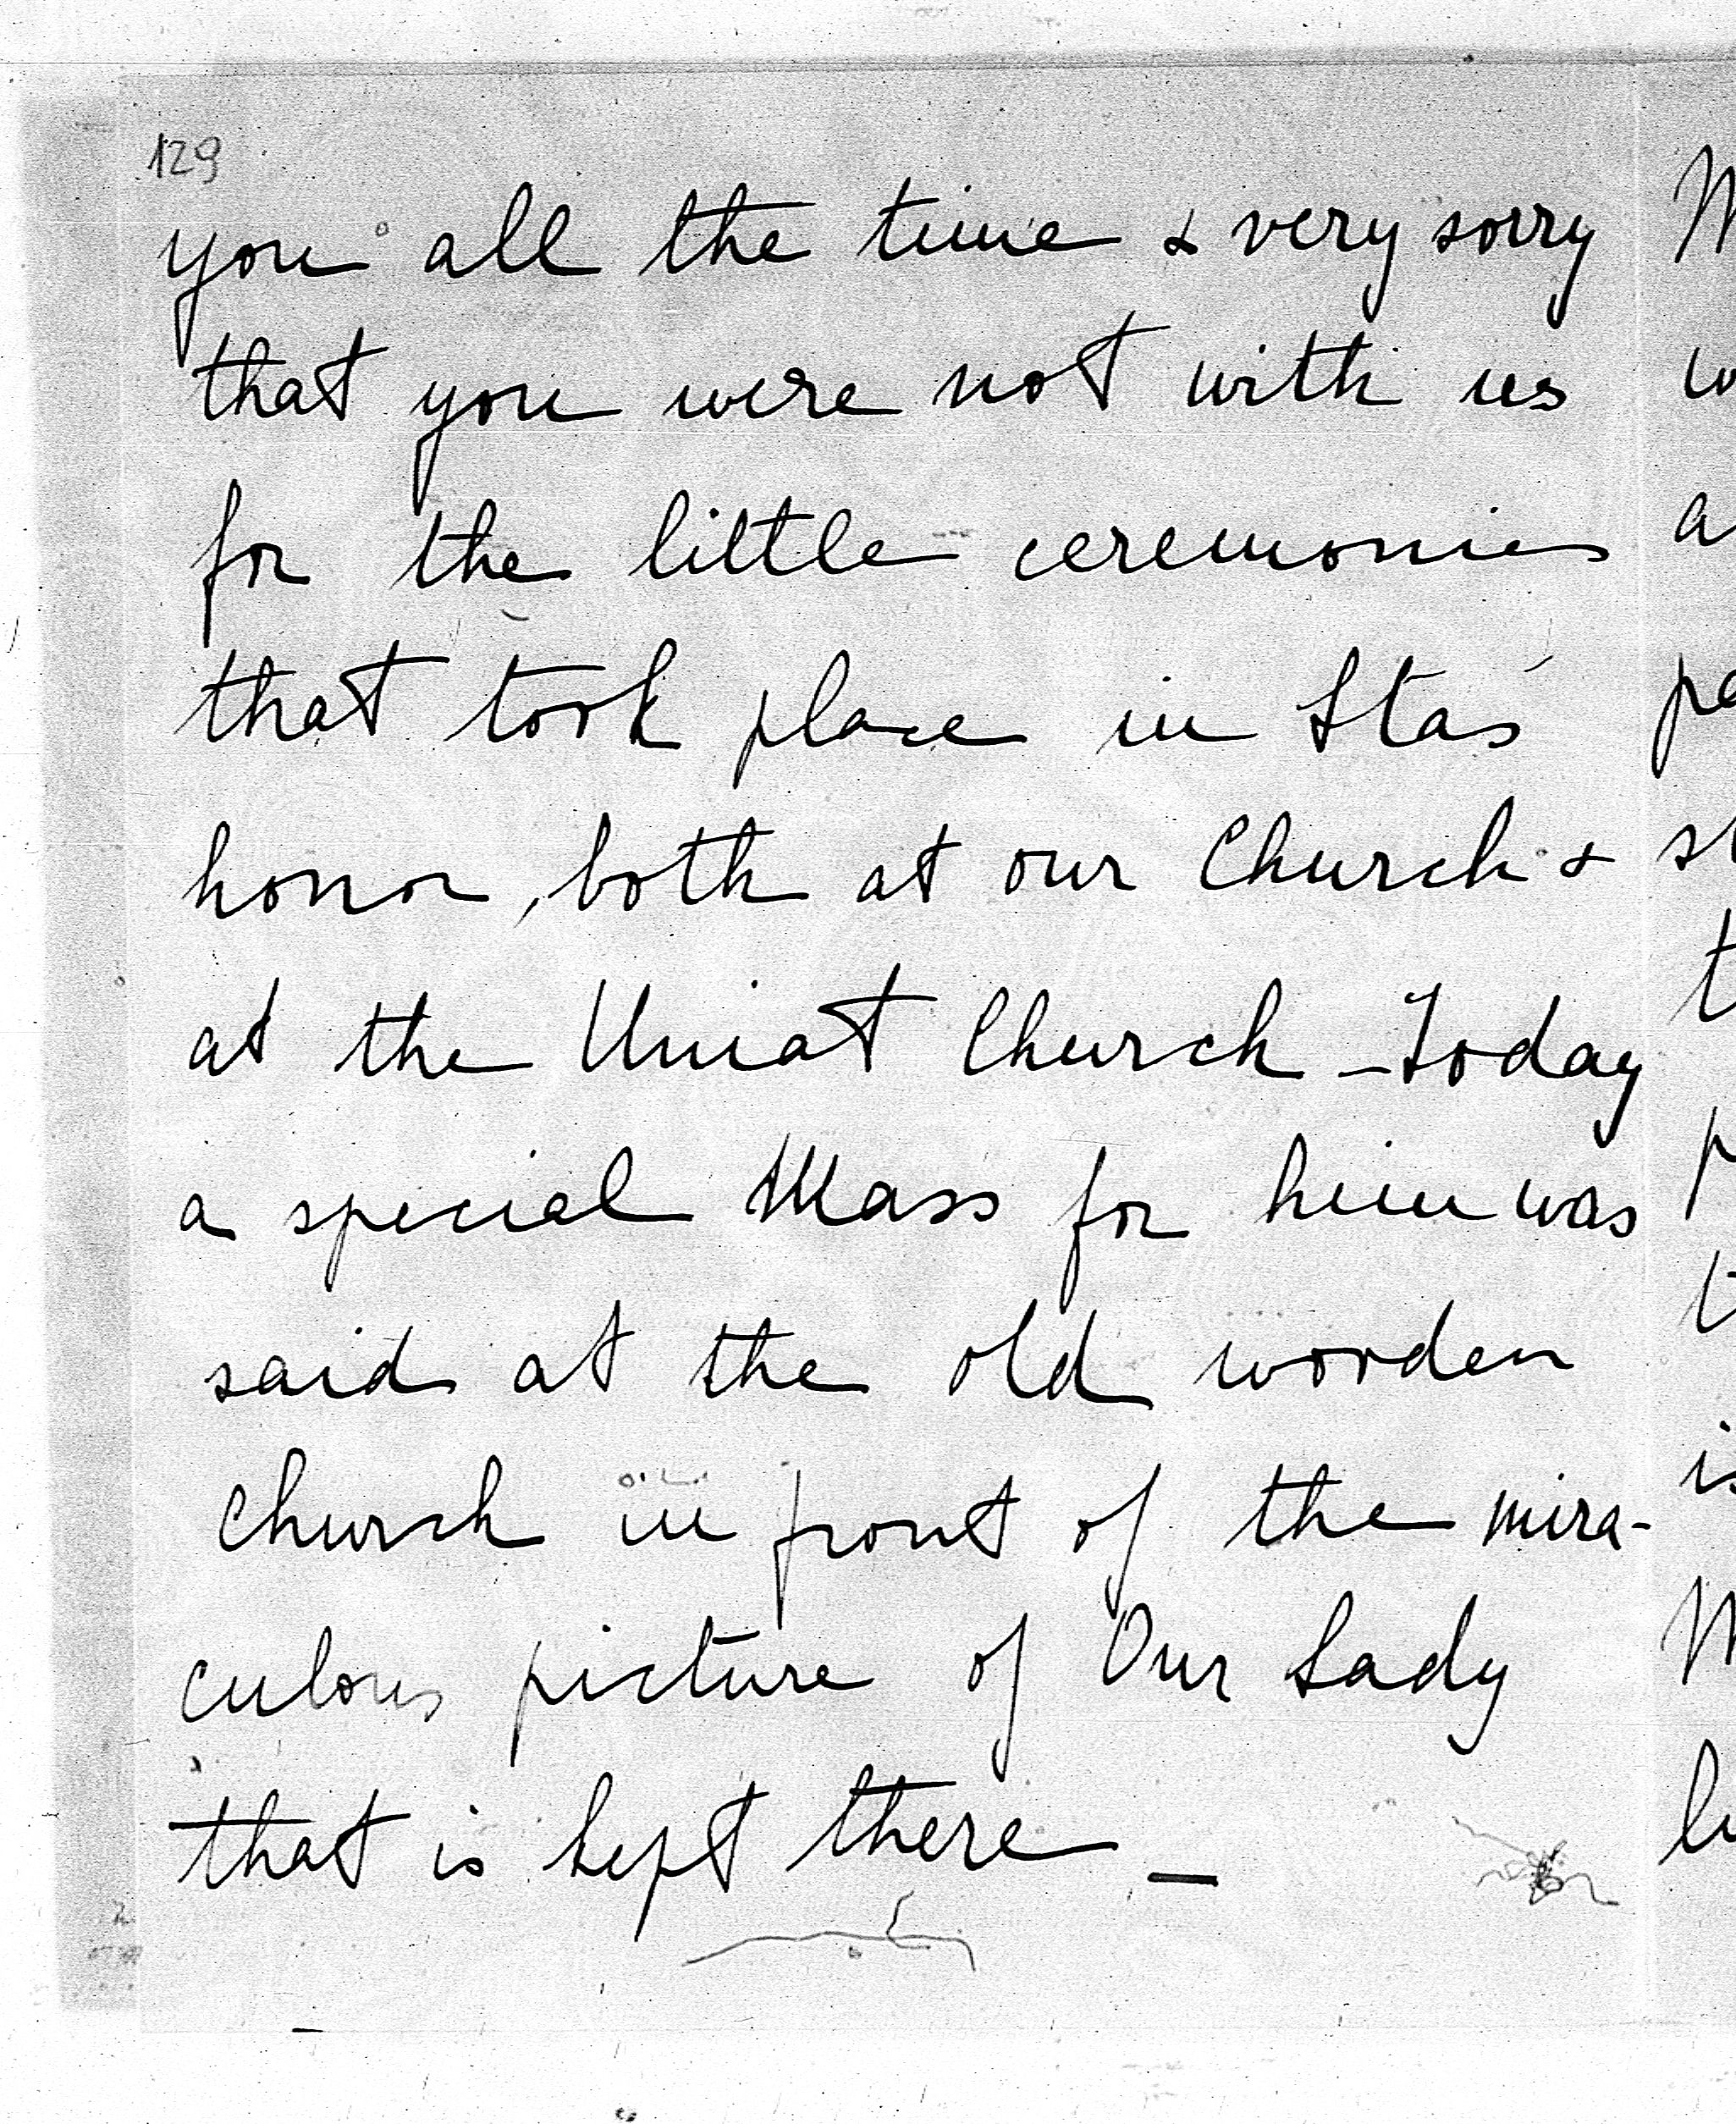 129
you all the time & very sorry
that you were not with us
for the little ceremonies
that took place in Stas'
honor, both at our Church &
at the Uniat Church - Today
a special Mass for him was
said at the old wooden
church in front of the mira-
culous picture of Our Lady
that is kept there -